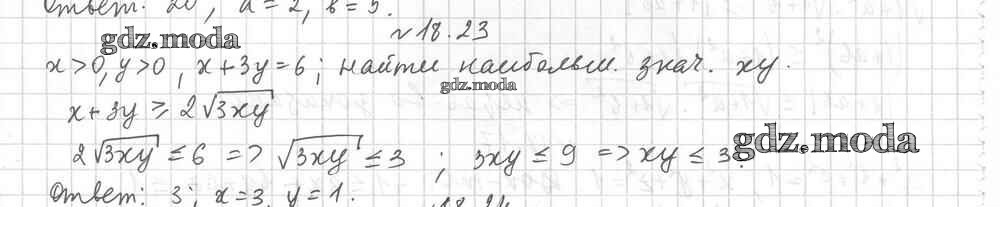 Ответ: 20, a=2, b=5.
№18.23
gdz.moda
x>0, y>0, x+3y=6; найти наибольш. знач. xy.
gdz.moda
x+3y ≥ 2√3xy
2√3xy ≤ 6 => √3xy ≤ 3 ; 3xy ≤ 9 => xy ≤ 3.
gdz.moda
Ответ: 3; x=3, y=1.